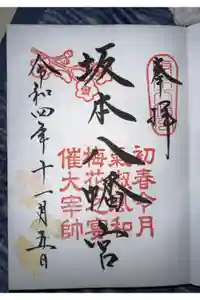 奉拝
初春令月
氣淑風和
坂本八幡宮
梅花之宴
催大宰帥
令和四年十一月五日